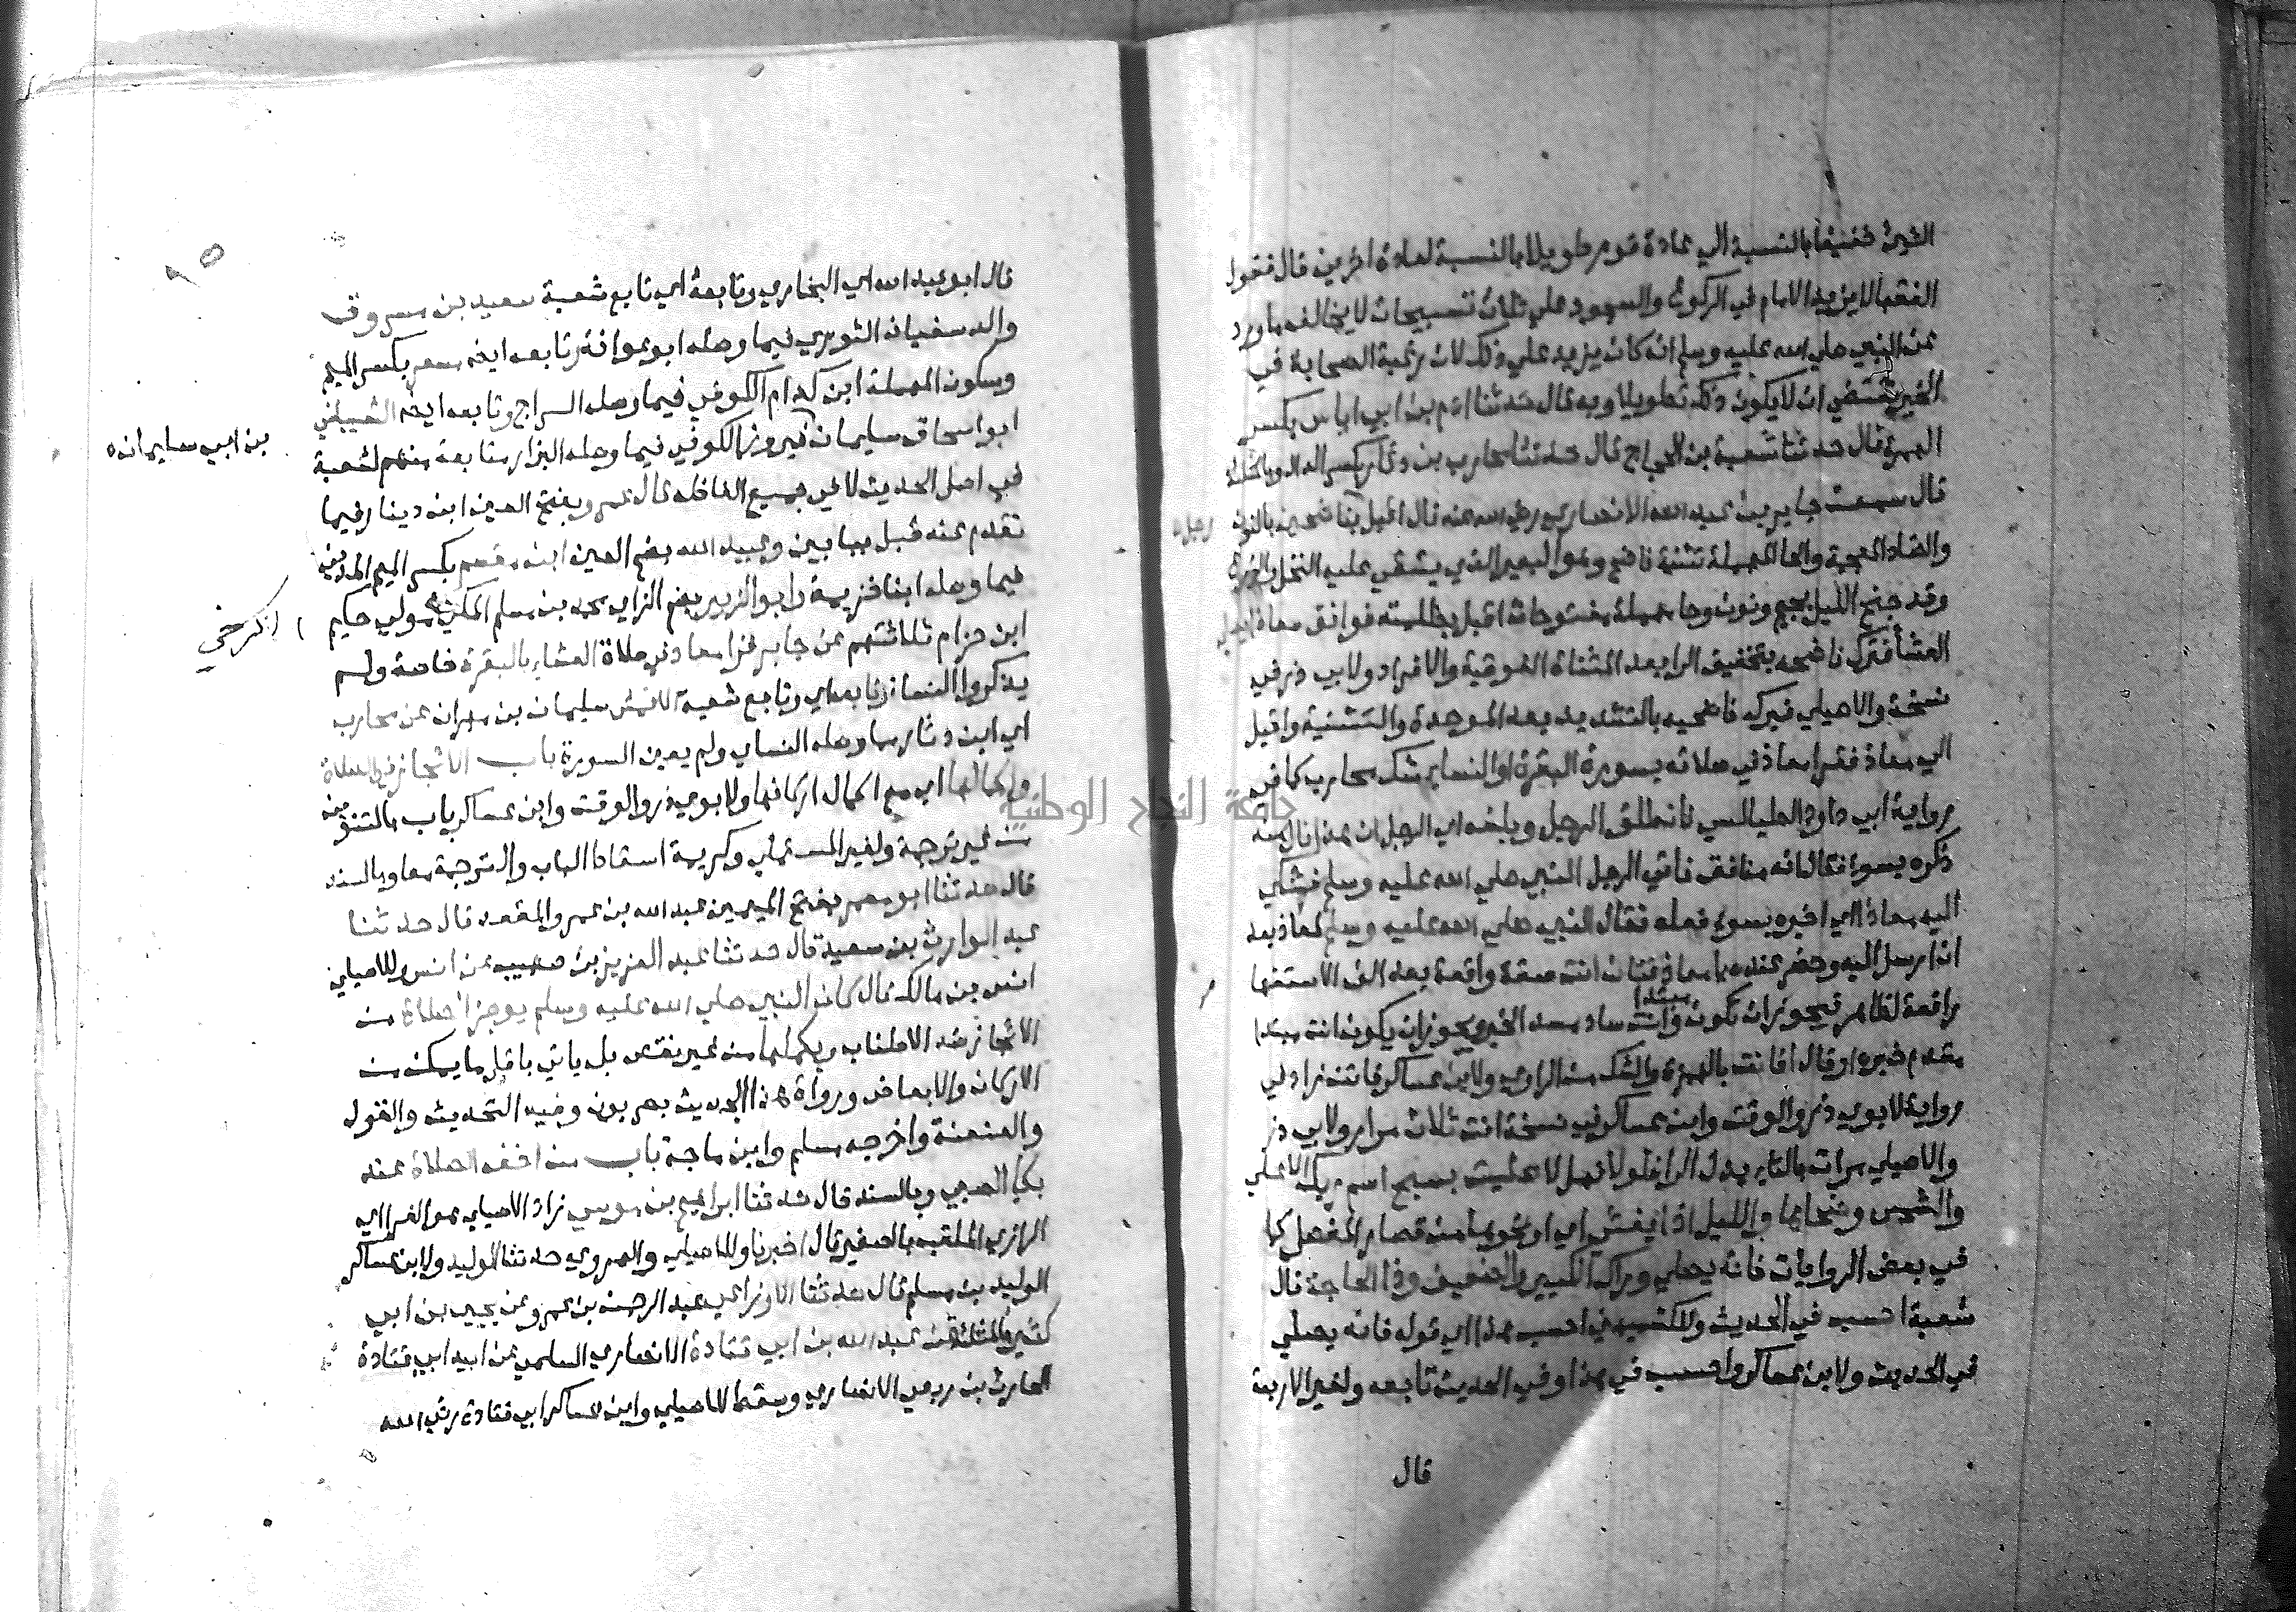 الشيئ خفيفا بالنسبة الي عادة قوم طويلا بالنسبة لعادة اخرين قال فقول
الفقها لا يزيد الامام في الركوع والسجود علي ثلاث تسبيحات لا يخالف ما ورد
عن النبي صلي الله عليه وسلم انه كان يزيد علي ذلك لان رغبة الصحابة في
الخير تقتضي ان لا يكون ذلك تطويلا وبه قال حدثنا ادم بن ابي اياس بكسر
الهمزة قال حدثنا شعبة بن الحجاج قال حدثنا محارب بن دثار بكسر الدال وبالمثلثة
قال سمعت جابر بن عبد الله الانصاري رضي الله عنه قال اقبل بناضحين بالنون
رجل
والضاد المعجمة والحا المهملة تثنية ناضح وهو البعير الذي يسقي عليه النخل والزرع
وقد جنح الليل بجيم ونون وحا مهملة مفتوحات اقبل بظلمته فوافق معاذا يصلي
العشا فترك ناضحه بتخفيف الرا بعد المثناة الفوقية والافراد ولابي ذر في
نسخة والاصيلي فبرك ناضحيه بالتشديد بعد الموحدة والتثنية واقبل
الي معاذ فقرا معاذ في صلاته بسورة البقرة او النسا شك محارب كما في
رواية ابي داود الطيالسي فانطلق الرجل وبلغه اي الرجل ان معاذا نال منه
ذكره بسوء فقال انه منافق فاتي الرجل النبي صلي الله عليه وسلم فشكي
اليه معاذا اي اخبره بسوء فعله فقال النبي صلي الله عليه وسلم لمعاذ بعد
ان ارسل اليه وحضر عنده يا معاذ فتان انت صفة واقعة بعد الف الاستفها
رافعة لظاهر فيجوز ان تكون مبتدا وانت ساد مسد الخبر ويجوز ان يكون انت مبتدا
مقدم خبره او قال افانت بالهمزة والشك من الراوي ولابن عساكر فاتن زاد في
رواية لابوي ذر والوقت وابن عساكر في نسخة انت ثلاث مرار ولابي ذر
والاصيلي مرات بالتاء بدل الرا فلولا فهلا صليت بسبح اسم ربك الاعلي
والشمس وضحاها والليل اذا يغشي اي او نحوها من قصار المفصل كما
في بعض الروايات فانه يصلي وراك الكبير والضعيف وذا الحاجة قال
شعبة احسب في الحديث وللكشميهني احسب هذا اي قوله فانه يصلي
في الحديث ولابن عساكر واحسب في هذا وفي الحديث تابعه ولغير الاربعة
قال
٩٥
قال ابو عبد الله اي البخاري وتابعه اي تابع شعبة سعيد بن مسروق
والد سفيان الثوري فيما وصله ابو عوانة وتابعه ايضا مسعر بكسر الميم
وسكون المهملة ابن كدام الكوفي فيما وصله السراج وتابعه ايضا الشيباني
ابو اسحاق سليمان فيروز الكوفي فيما وصله البزار متابعة منهم لشعبة
بن ابي سليمان
في اصل الحديث لا في جميع الفاظه قال عمرو بفتح العين ابن دينار فيما
تقدم عنه قبل ببابين وعبيد الله بضم العين ابن مقسم بكسر الميم المدني
فيما وصله ابنا خزيمة وابو الزبير بضم الزاي محمد بن مسلم المكي مولي حكيم
ابن حزام ثلاثتهم عن جابر قرا معاذ في صلاة العشاء بالبقرة خاصة ولم
يذكروا النسا وتابعه اي وتابع شعبة الاعمش سليمان بن مهران عن محارب
اي ابن دثار مما وصله النساي ولم يعين السورة باب الايجاز في الصلاة
واكمالها اي مع اكمال اركانها ولابوي ذر والوقت وابن عساكر باب بالتنوين
من غير ترجمة ولغير المستملي وكريمة اسقاط الباب والترجمة معا وبالسند
قال حدثنا ابو معمر بفتح الميمين عبد الله بن عمرو المقعد قال حدثنا
عبد الوارث بن سعيد قال حدثنا عبد العزيز بن صهيب عن انس وللاصيلي
انس بن مالك قال كان النبي صلي الله عليه وسلم يوجز الصلاة من
الايجاز ضد الاطناب ويكملها من غير نقص بل ياتي باقل ما يمكن من
الاركان والابعاض ورواة هذا الحديث بصريون وفيه التحديث والقول
والعنعنة واخرجه مسلم وابن ماجة باب من اخف الصلاة عند
بكا الصبي وبالسند قال حدثنا ابراهيم بن موسي زاد الاصيلي هو الفرا اي
الرازي الملقب بالصغير قال اخبرنا وللاصيلي والهروي حدثنا الوليد ولابن عساكر
الوليد بن مسلم قال حدثنا الاوزاعي عبد الرحمن بن عمرو عن يحيي بن ابي
كثير بالمثلثة عن عبد الله بن ابي قتادة الانصاري السلمي عن ابيه ابي قتادة
الحارث بن ربعي الانصاري وسقط للاصيلي وابن عساكر ابي قتادة رضي الله
جامعة النجاح الوطنية